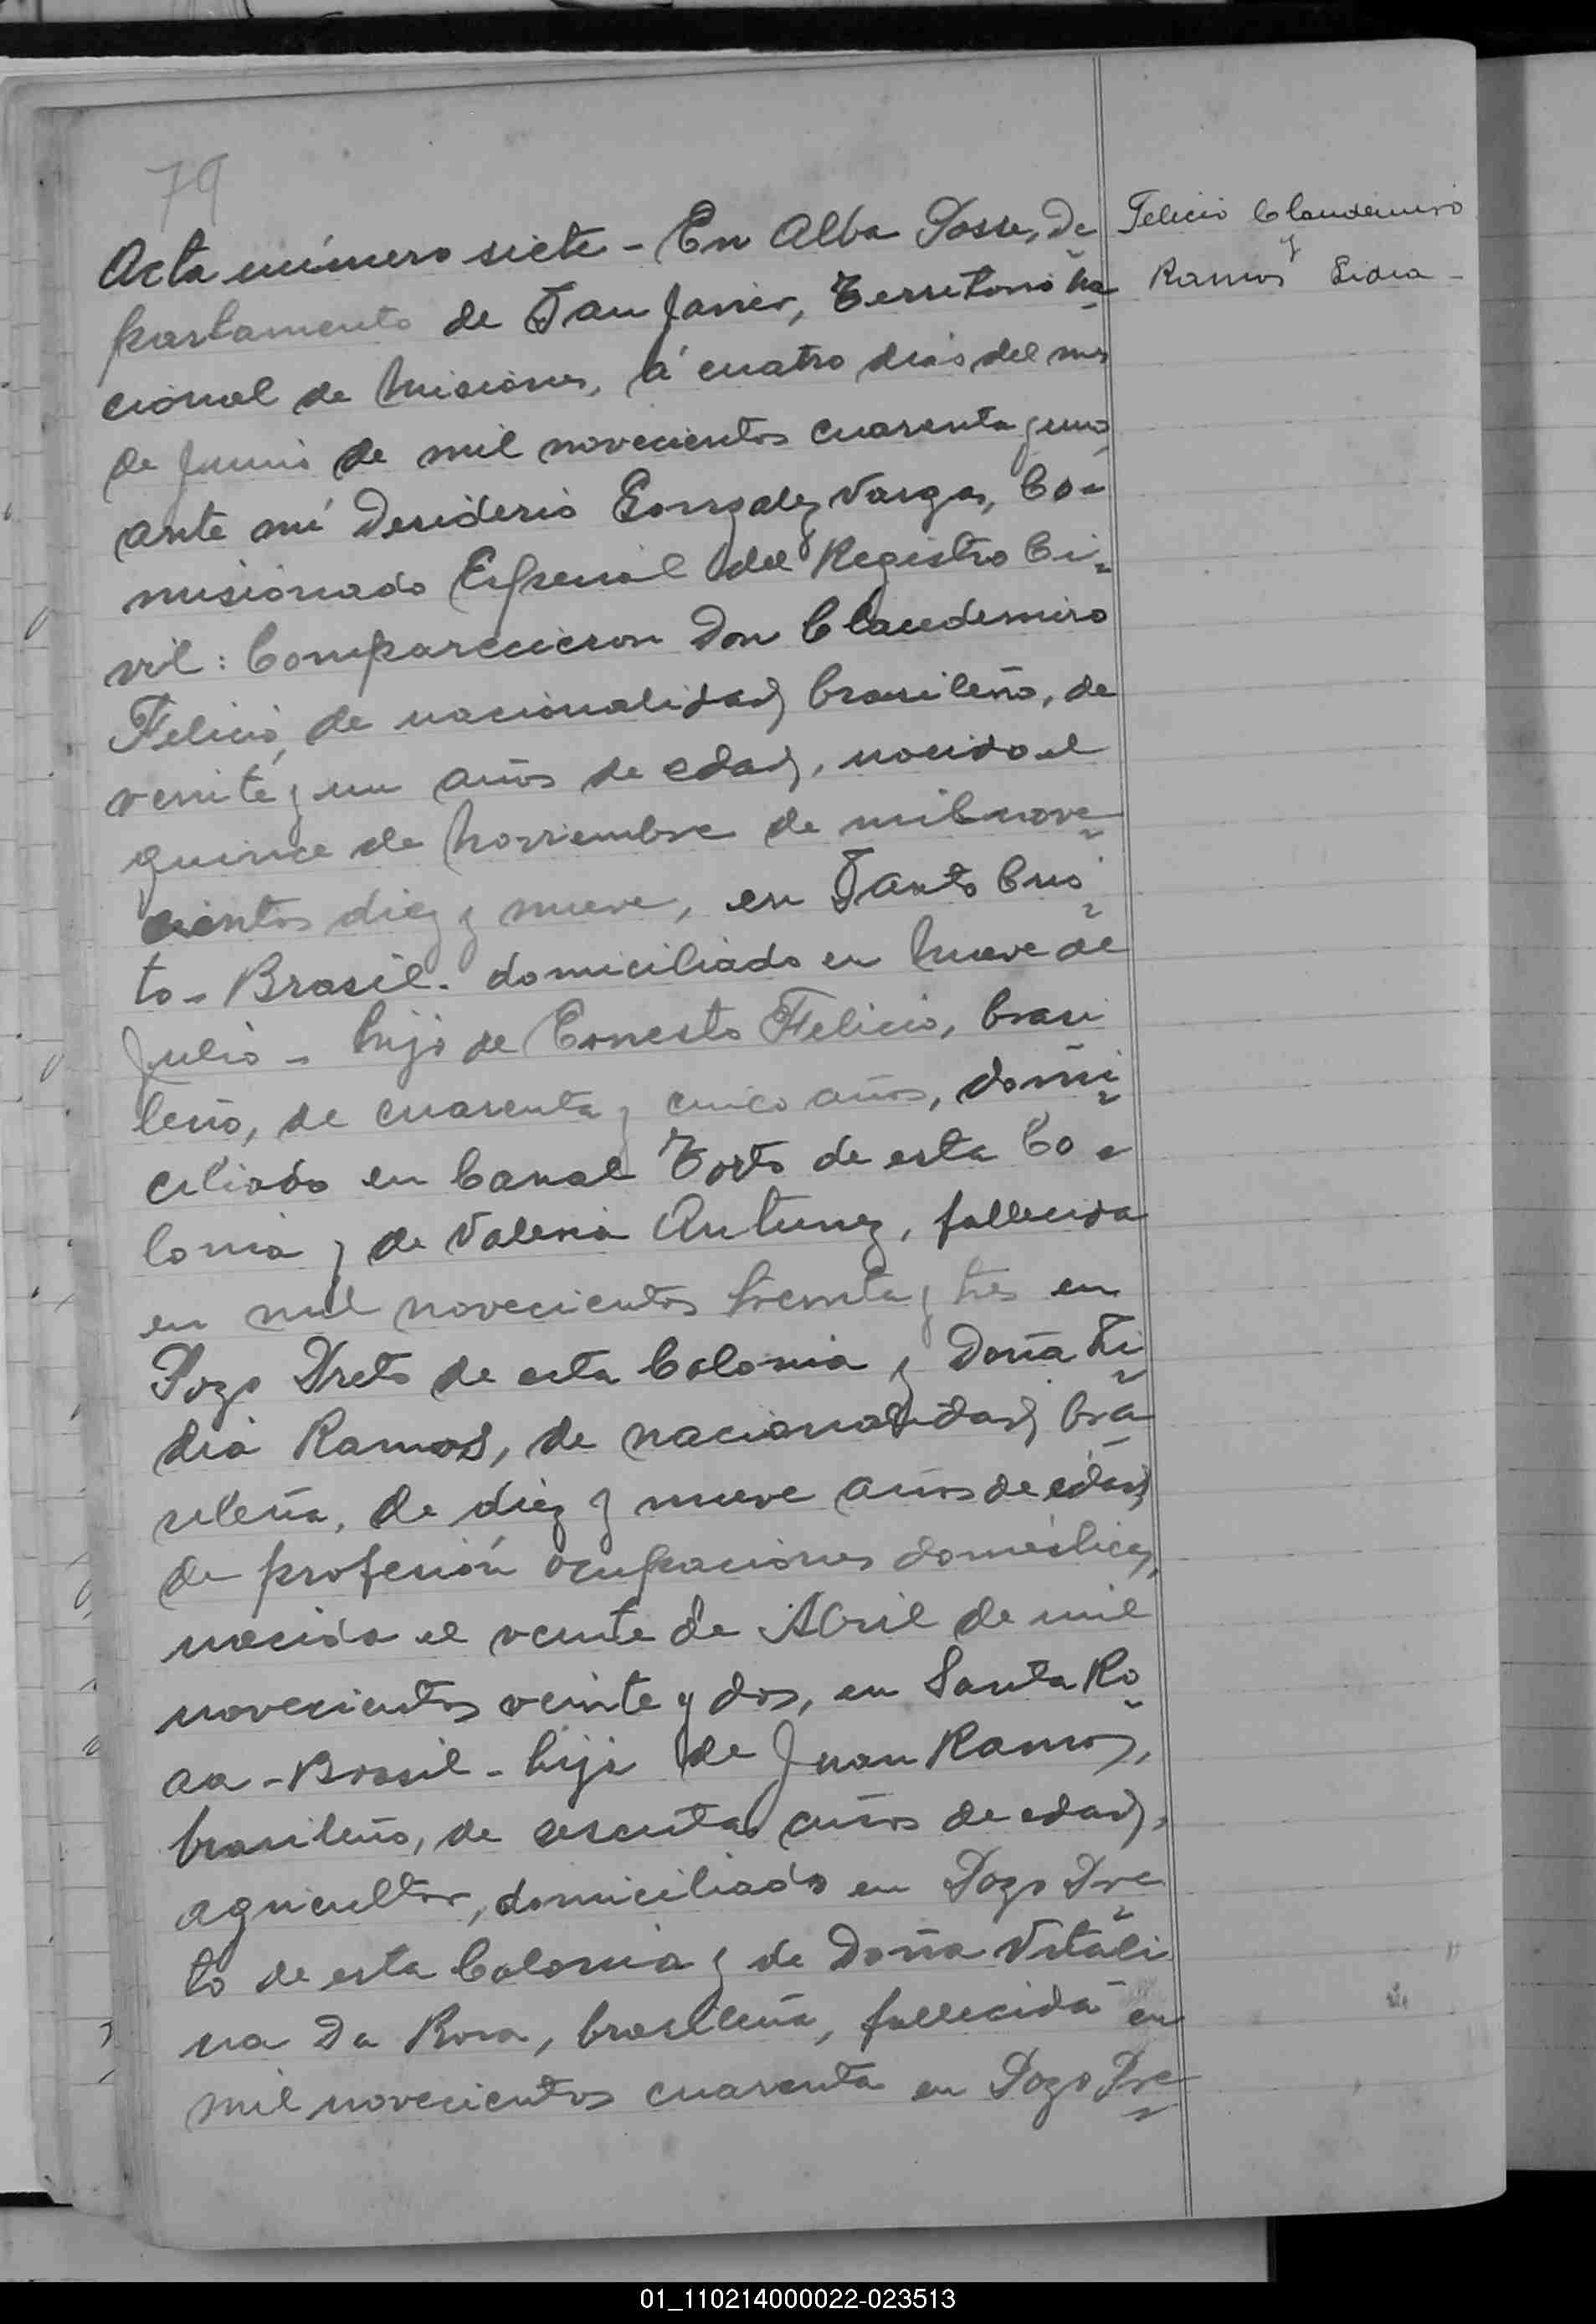 79
Acta número siete - En Alba Posse, De
partamento de San Javier, Territorio Na
cional de Misiones, á cuatro dias del mes
de Junio de mil novecientos cuarenta y uno,
ante mí Desiderio Gonzalez Vargas, Co-
misionado Especial del Registro Ci-
vil: Comparecieron Don Claudemiro
Felicio, de nacionalidad brasileño, de
veinte y un años de edad, nacido el
quince de Noviembre de mil nove-
cientos diez y nueve, en Santo Cris-
to - Brasil - domiciliado en Nueve de
Julio - hijo de Ernesto Felicio, brasi
leño, de cuarenta y cinco años, domi-
ciliado en Canal Torto de esta Co-
lonia y de Valeria Antunez, fallecida
en mil novecientos treinta y tres en
Pozo Preto de esta Colonia y Doña Li-
dia Ramos, de nacionalidad bra
sileña, de diez y nueve años de edad,
de profesión ocupaciones domésticas,
nacida el veinte de Abril de mil
novecientos veinte y dos, en Santa Ro-
sa - Brasil - hija de Juan Ramos,
brasileño, de sesenta años de edad,
agricultor, domiciliado en Pozo Pre-
to de esta Colonia y de Doña Vitali
na Da Rosa, brasileña, fallecida en
mil novecientos cuarenta en Pozo Pre-
Felicio Claudemiro
y
Ramos Lidia -
01_110214000022-023513